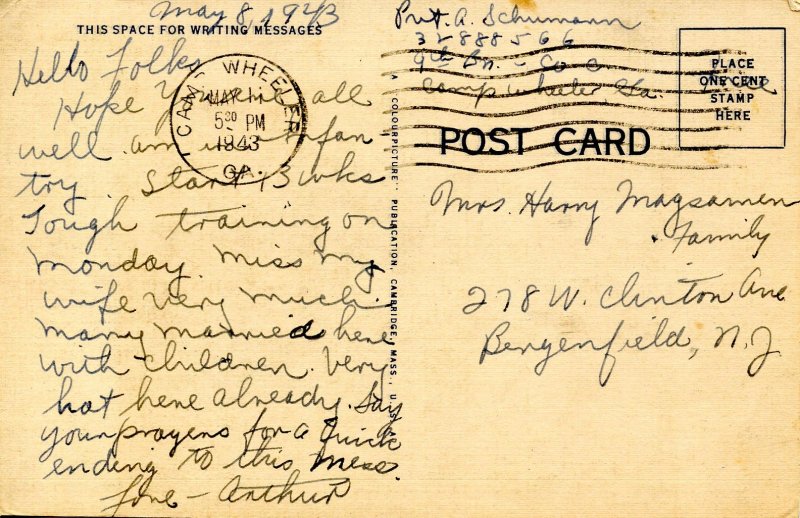 May 8, 1943
THIS SPACE FOR WRITING MESSAGES
Hello Folks
Hope you are all
well am in Infan
try. Start 13 wks
Tough training on
Monday. Miss my
wife very much.
Many married here
with children. Very
hot here already. Say
your prayers for a Quick
ending to this mess.
Love - Arthur
CAMP WHEELER
MAY
5 30 PM
1943
GA.
A "COLOURPICTURE" PUBLICATION, CAMBRIDGE, MASS., U.S.A.
Pvt. A. Schumann
32888566
9th Bn. - Co C
Camp Wheeler, Ga.
Free
PLACE
ONE CENT
STAMP
HERE
POST CARD
Mrs. Harry Magsamen
. Family
278 W. Clinton Ave
Bergenfield, N.J